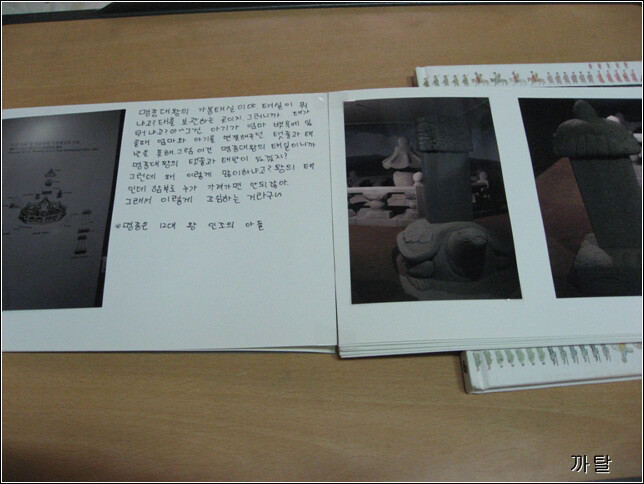 명종대왕의 가봉태실이야. 태실이 뭐
냐고? 태를 보관하는 곳이지. 그러니까 태가
뭐냐고? 아~ 그건 아기가 엄마 뱃속에 있
을때 엄마와 아기를 연결해주던 탯줄과 태
반을 통해. 그럼 이건 명종대왕의 태실이니까
명종대왕의 탯줄과 태반이 있겠지?
그런데 왜 이렇게 많이하냐고? 왕의 태
인데 함부로 누가 가져가면 안되잖아.
그래서 이렇게 조심하는 거라구~
*명종은 12대 왕 인조의 아들
까탈